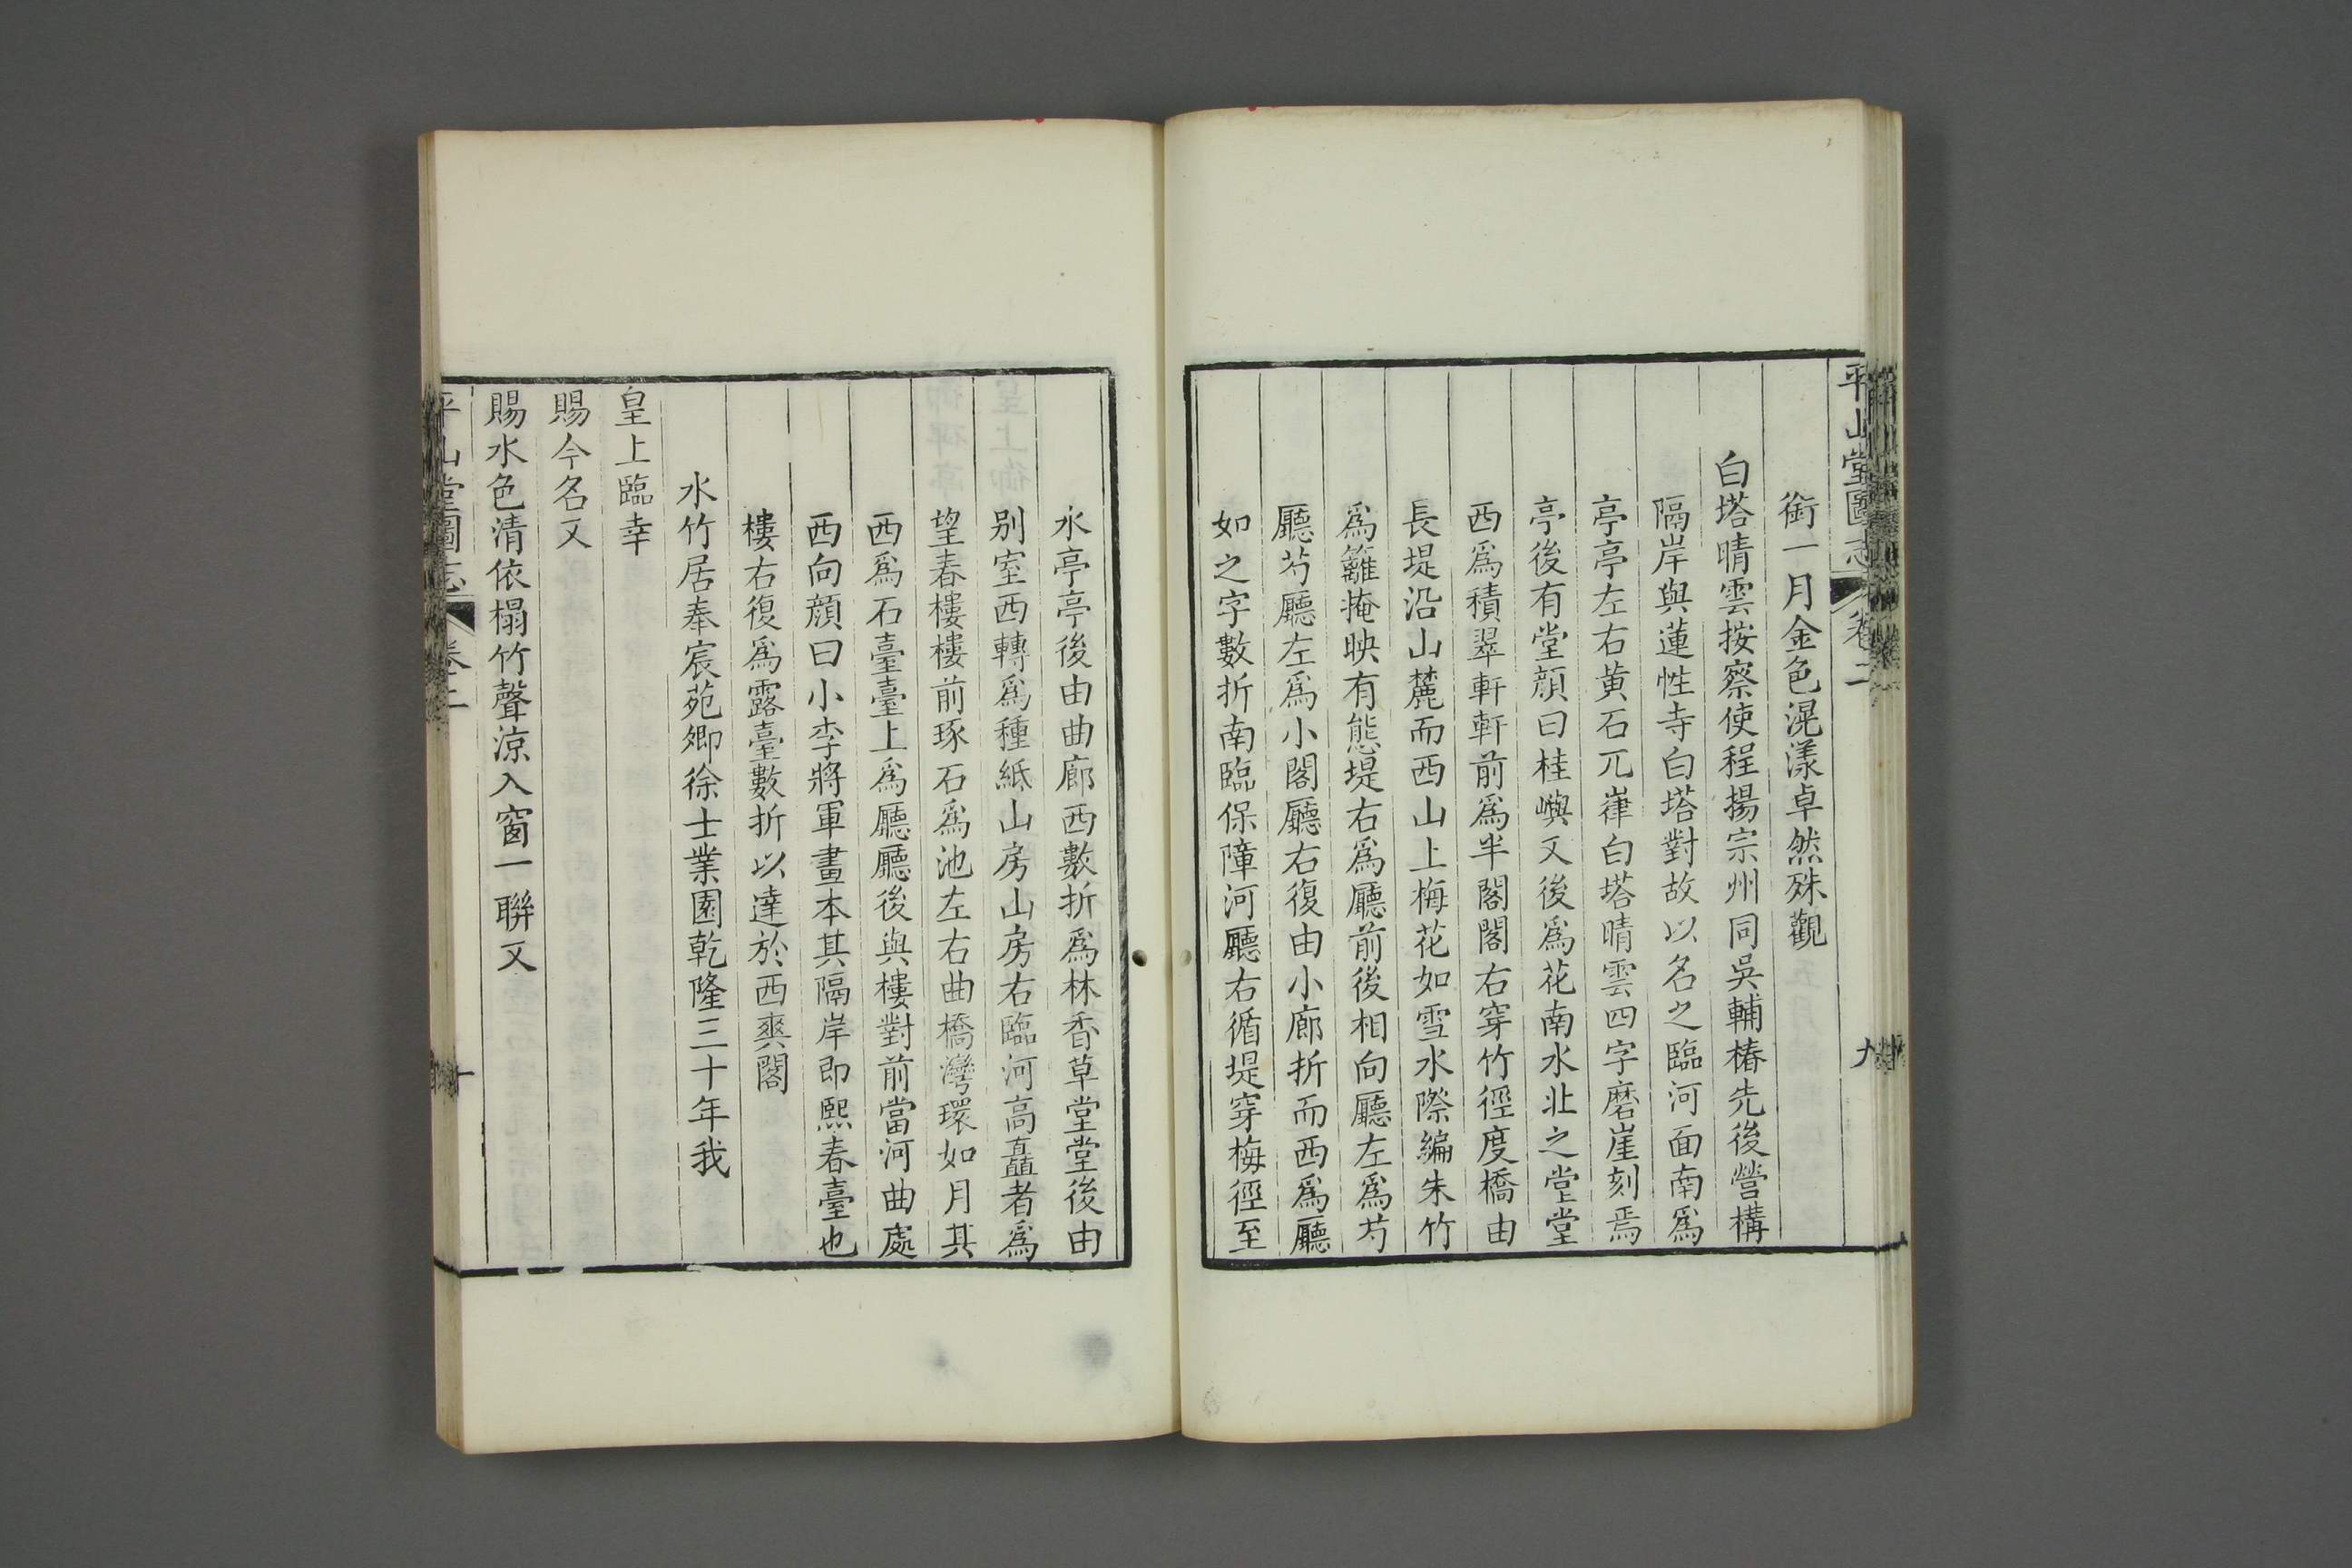 平山堂圖志 卷二 九
銜一月金色滉漾卓然殊觀
白塔晴雲按察使程揚宗州同吳輔椿先後營構
隔岸與蓮性寺白塔對故以名之臨河面南爲
亭亭左右黄石兀嵂白塔晴雲四字磨崖刻焉
亭後有堂顔曰桂嶼又後爲花南水北之堂堂
西爲積翠軒軒前爲半閣閣右穿竹徑度橋由
長堤沿山麓而西山上梅花如雪水際編朱竹
爲籬掩映有態堤右爲廳前後相向廳左爲芍
廳芍廳左爲小閣廳右復由小廊折而西爲廳
如之字數折南臨保障河廳右循堤穿梅徑至
水亭亭後由曲廊西數折爲林香草堂堂後由
别室西轉爲種紙山房山房右臨河高矗者爲
望春樓樓前琢石爲池左右曲橋灣環如月其
西爲石臺臺上爲廳廳後與樓對前當河曲處
西向顔曰小李將軍畫本其隔岸即熙春臺也
樓右復爲露臺數折以達於西爽閣
水竹居奉宸苑卿徐士業園乾隆三十年我
皇上臨幸
賜今名又
賜水色清依榻竹聲涼入窗一聯又
平山堂圖志 卷二 十